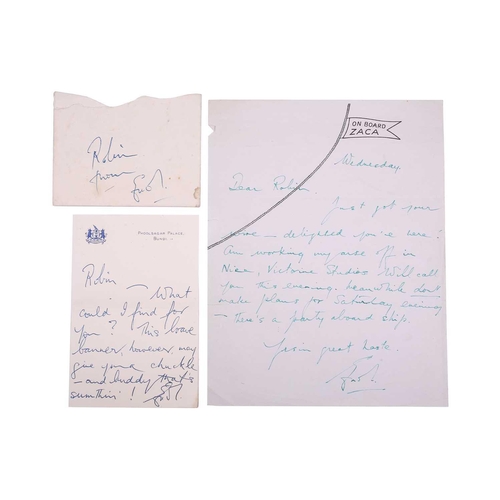 Robin
from
ON BOARD
ZACA
Wednesday.
Dear Robin.
Just got your
– delighted you're here!
Am working my arse off in
Nice, Victorine Studios. Will call
you this evening. Meanwhile don't
make plans for Saturday evening
– there's a party aboard ship.
Yours in great haste.
PALACE,
Robin
– What
could I find for
you? This
banner, however, may
give you a chuckle
– and buddy that's
sumthin'!